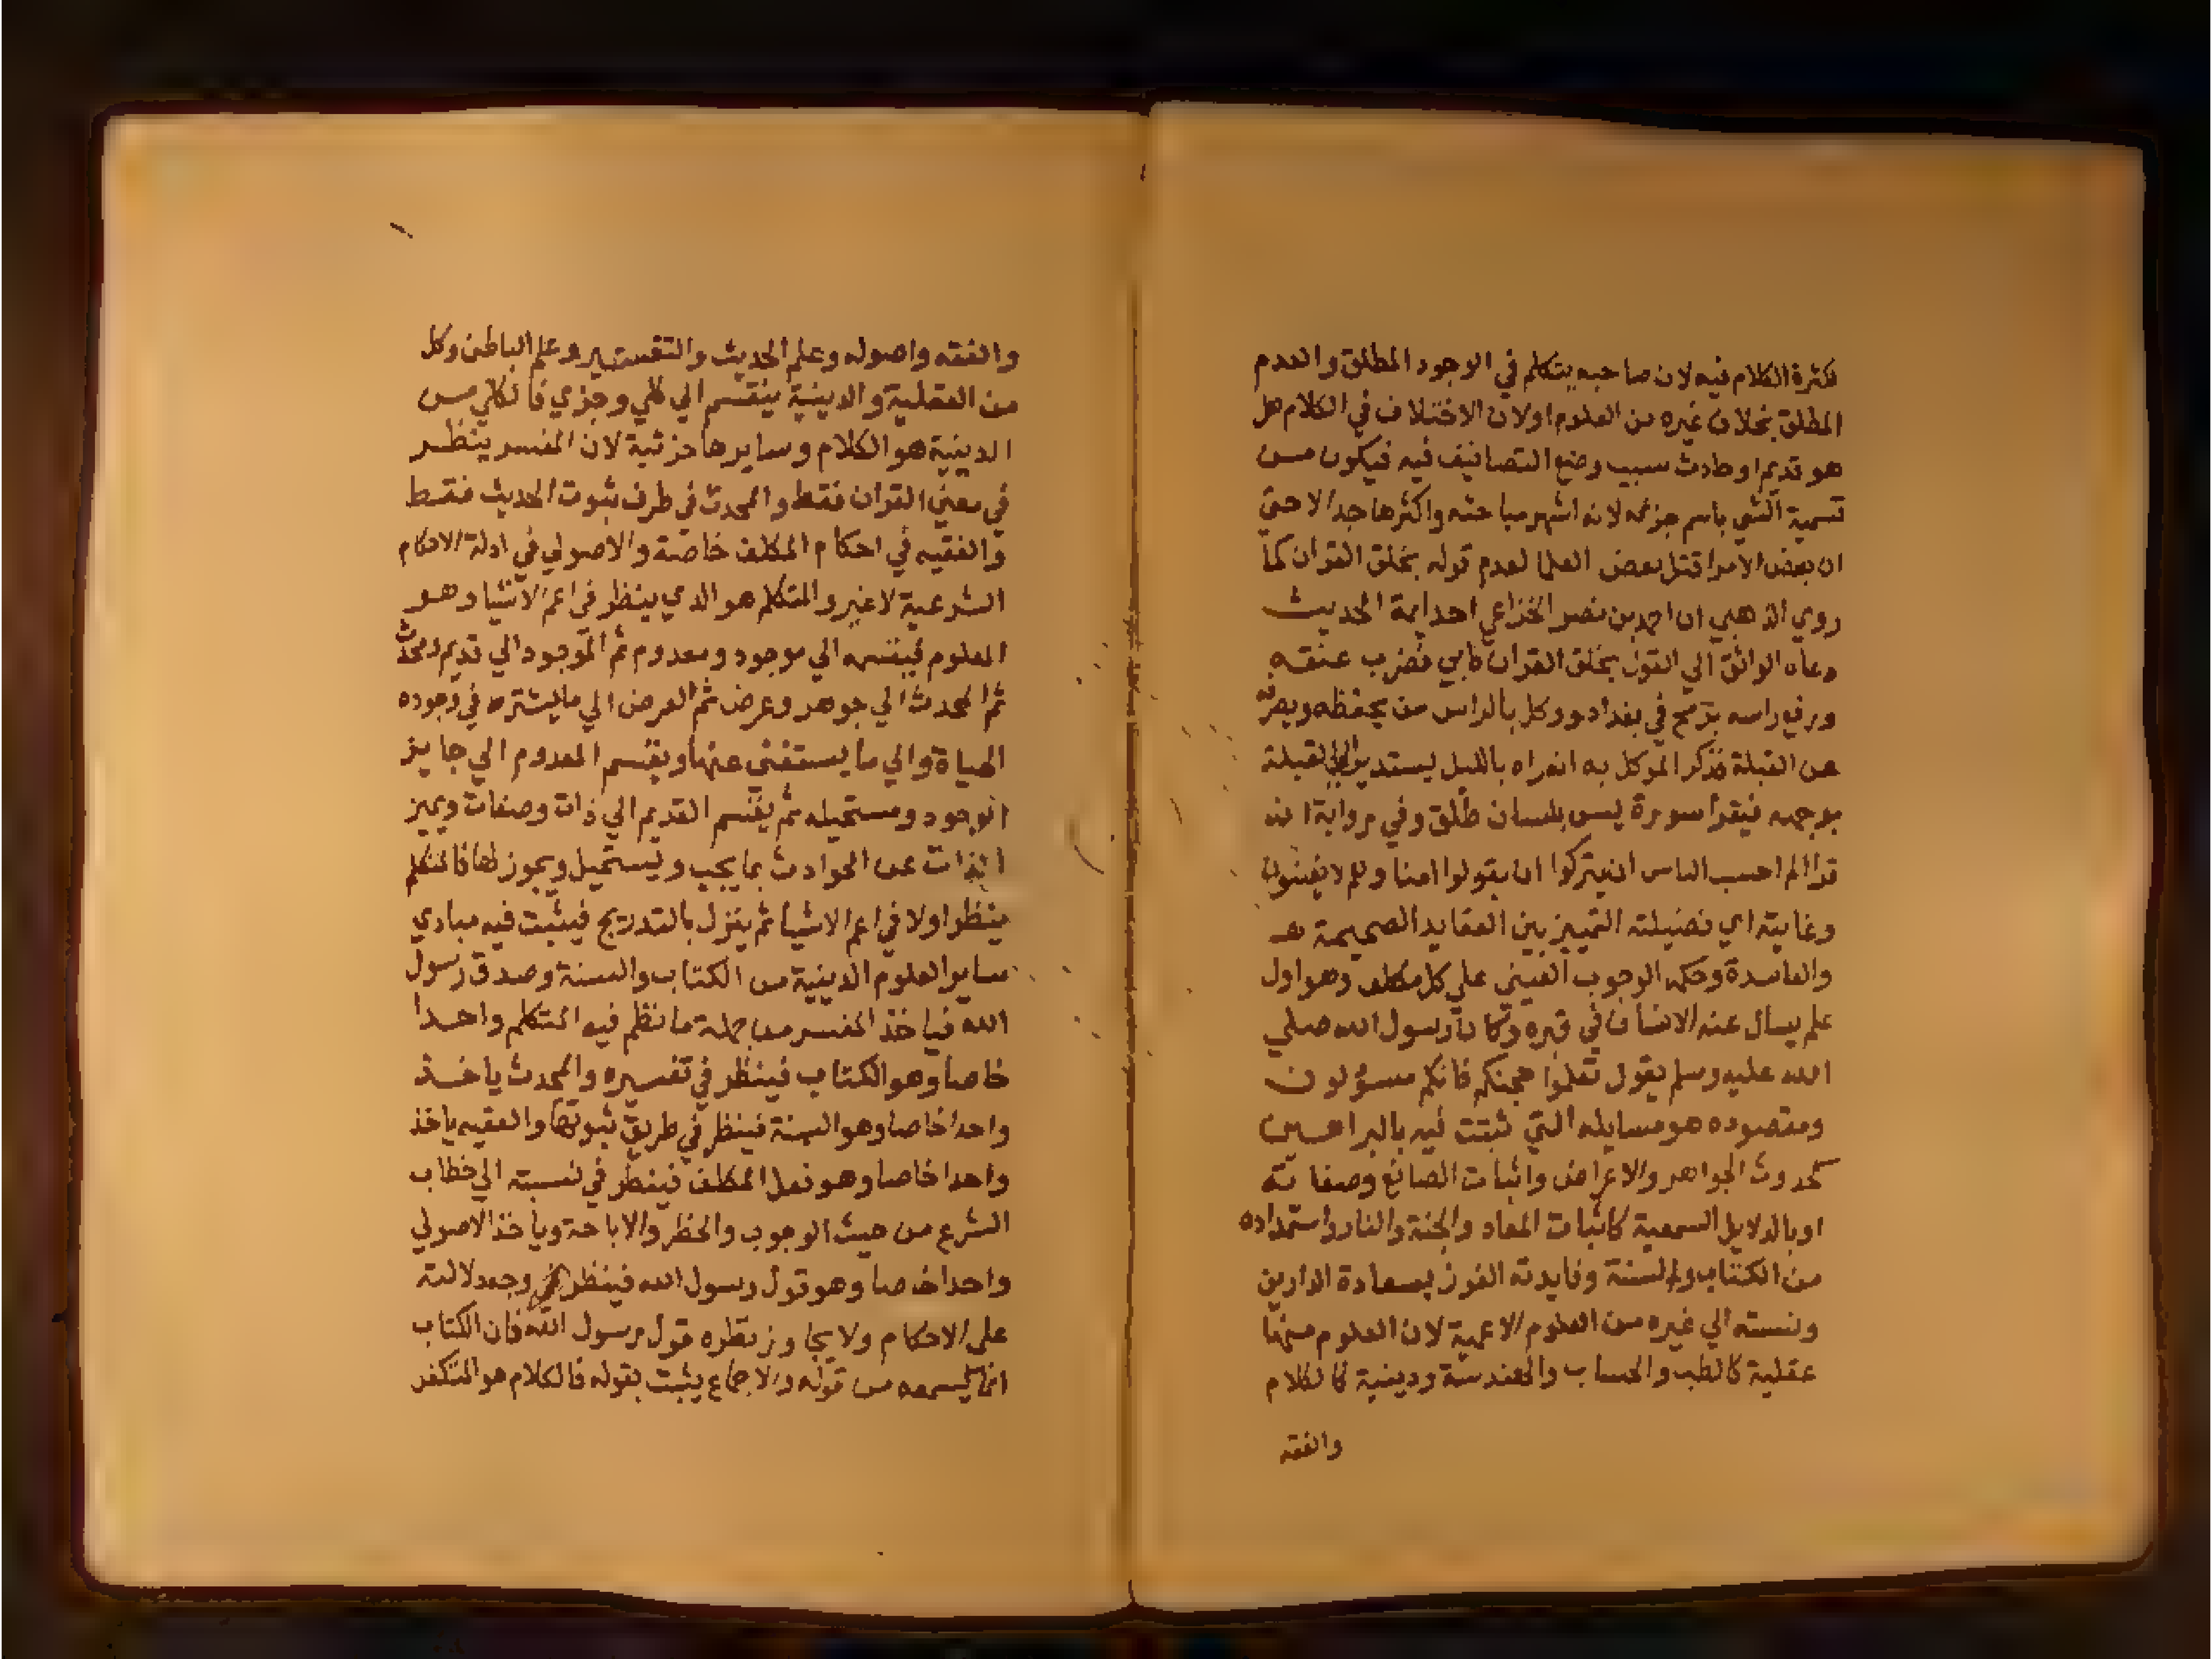 فكثرة الكلام فيه لان صاحبه يتكلم في الوجود المطلق والعدم
المطلق بخلاف غيره من العلوم اولان الاختلاف في الكلام هل
هو قديم او حادث سبب وضع التصانيف فيه فيكون مـن
تسمية الشي باسم جزئه لانه اشهر مباحثه واكثرها جدالا حتي
ان بعض الامرا قتل بعض العلما لعدم قوله بخلق القران كما
روي الذهبي ان احمد بن نصر الخزاعي احد ايمة الحديث
دعاه الواثق الي القول بخلق القران فابي فضرب عنقه
ورفع راسه برمح في بغداد ووكل بالراس من يحفظه ويصرفه
عن القبلة فذكر الموكل به انه راه بالليل يستدير الي القبلة
بوجهه فيقرأ سورة يس بلسان طلق وفي رواية انه
قرا الم احسب الناس ان يتركوا ان يقولوا امنا وهم لا يفتنون
وغايته اي فضيلته التمييز بين العقايد الصحيحة
والفاسدة وحكمه الوجوب العيني علي كل مكلف وهو اول
علم يسال عنه الانسان في قبره وكان رسول الله صلي
الله عليه وسلم يقول تعلموا حجتكم فانكم مسؤلون
ومقصوده هو مسايله التي ثبتت فيه بالبراهين
كحدوث الجواهر والاعراض واثبات الصانع وصفاته
او بالدلايل السمعية كاثبات المعاد والجنة والنار واستمداده
من الكتاب والسنة وفايدته الفوز بسعادة الدارين
ونسبته الي غيره من العلوم الاعمية لان العلوم منها
عقلية كالطب والحساب والهندسة ودينية كالكلام
والفقه
والفقه واصوله وعلم الحديث والتفسير وعلم الباطن وكل
من العقلية والدينية ينقسم الي كلي وجزي فالكلي مـن
الدينية هو الكلام وسايرها جزئية لان المفسر ينظر
في معني القران فقط والمحدث في طرف ثبوت الحديث فقط
والفقيه في احكام المكلف خاصة والاصولي في ادلة الاحكام
الشرعية لا غير والمتكلم هو الدي ينظر في اعم الاشيا وهو
المعلوم فيقسمه الي موجود ومعدوم ثم الموجود الي قديم ومحدث
ثم المحدث الي جوهر وعرض ثم العرض الي ما يشترط في وجوده
الحياة والي ما يستغني عنها ويقسم المعدوم الي جايز
الوجود ومستحيله ثم يقسم القديم الي ذات وصفات ويميز
الذات عن الحوادث بما يجب ويستحيل ويجوز لها فالمتكلم
ينظر اولا في اعم الاشيا ثم ينزل بالتدريج فيثبت فيه مبادي
ساير العلوم الدينية من الكتاب والسنة وصدق رسول
الله فياخذ المفسر من جملة ما نظم فيه المتكلم واحدا
خاصا وهو الكتاب فينظر في تفسيره والمحدث ياخذ
واحدا خاصا وهو السنة فينظر في طريق ثبوتها والفقيه ياخذ
واحدا خاصا وهو فعل المكلف فينظر في نسبته الي خطاب
الشرع من حيث الوجوب والحظر والاباحة وياخذ الاصولي
واحدا خاصا وهو قول رسول الله فينظر في وجه دلالته
علي الاحكام ولا يجاوز نظره قول رسول الله فان الكتاب
انما يسمعه من قوله والاجماع يثبت بقوله فالكلام هو المتكفل